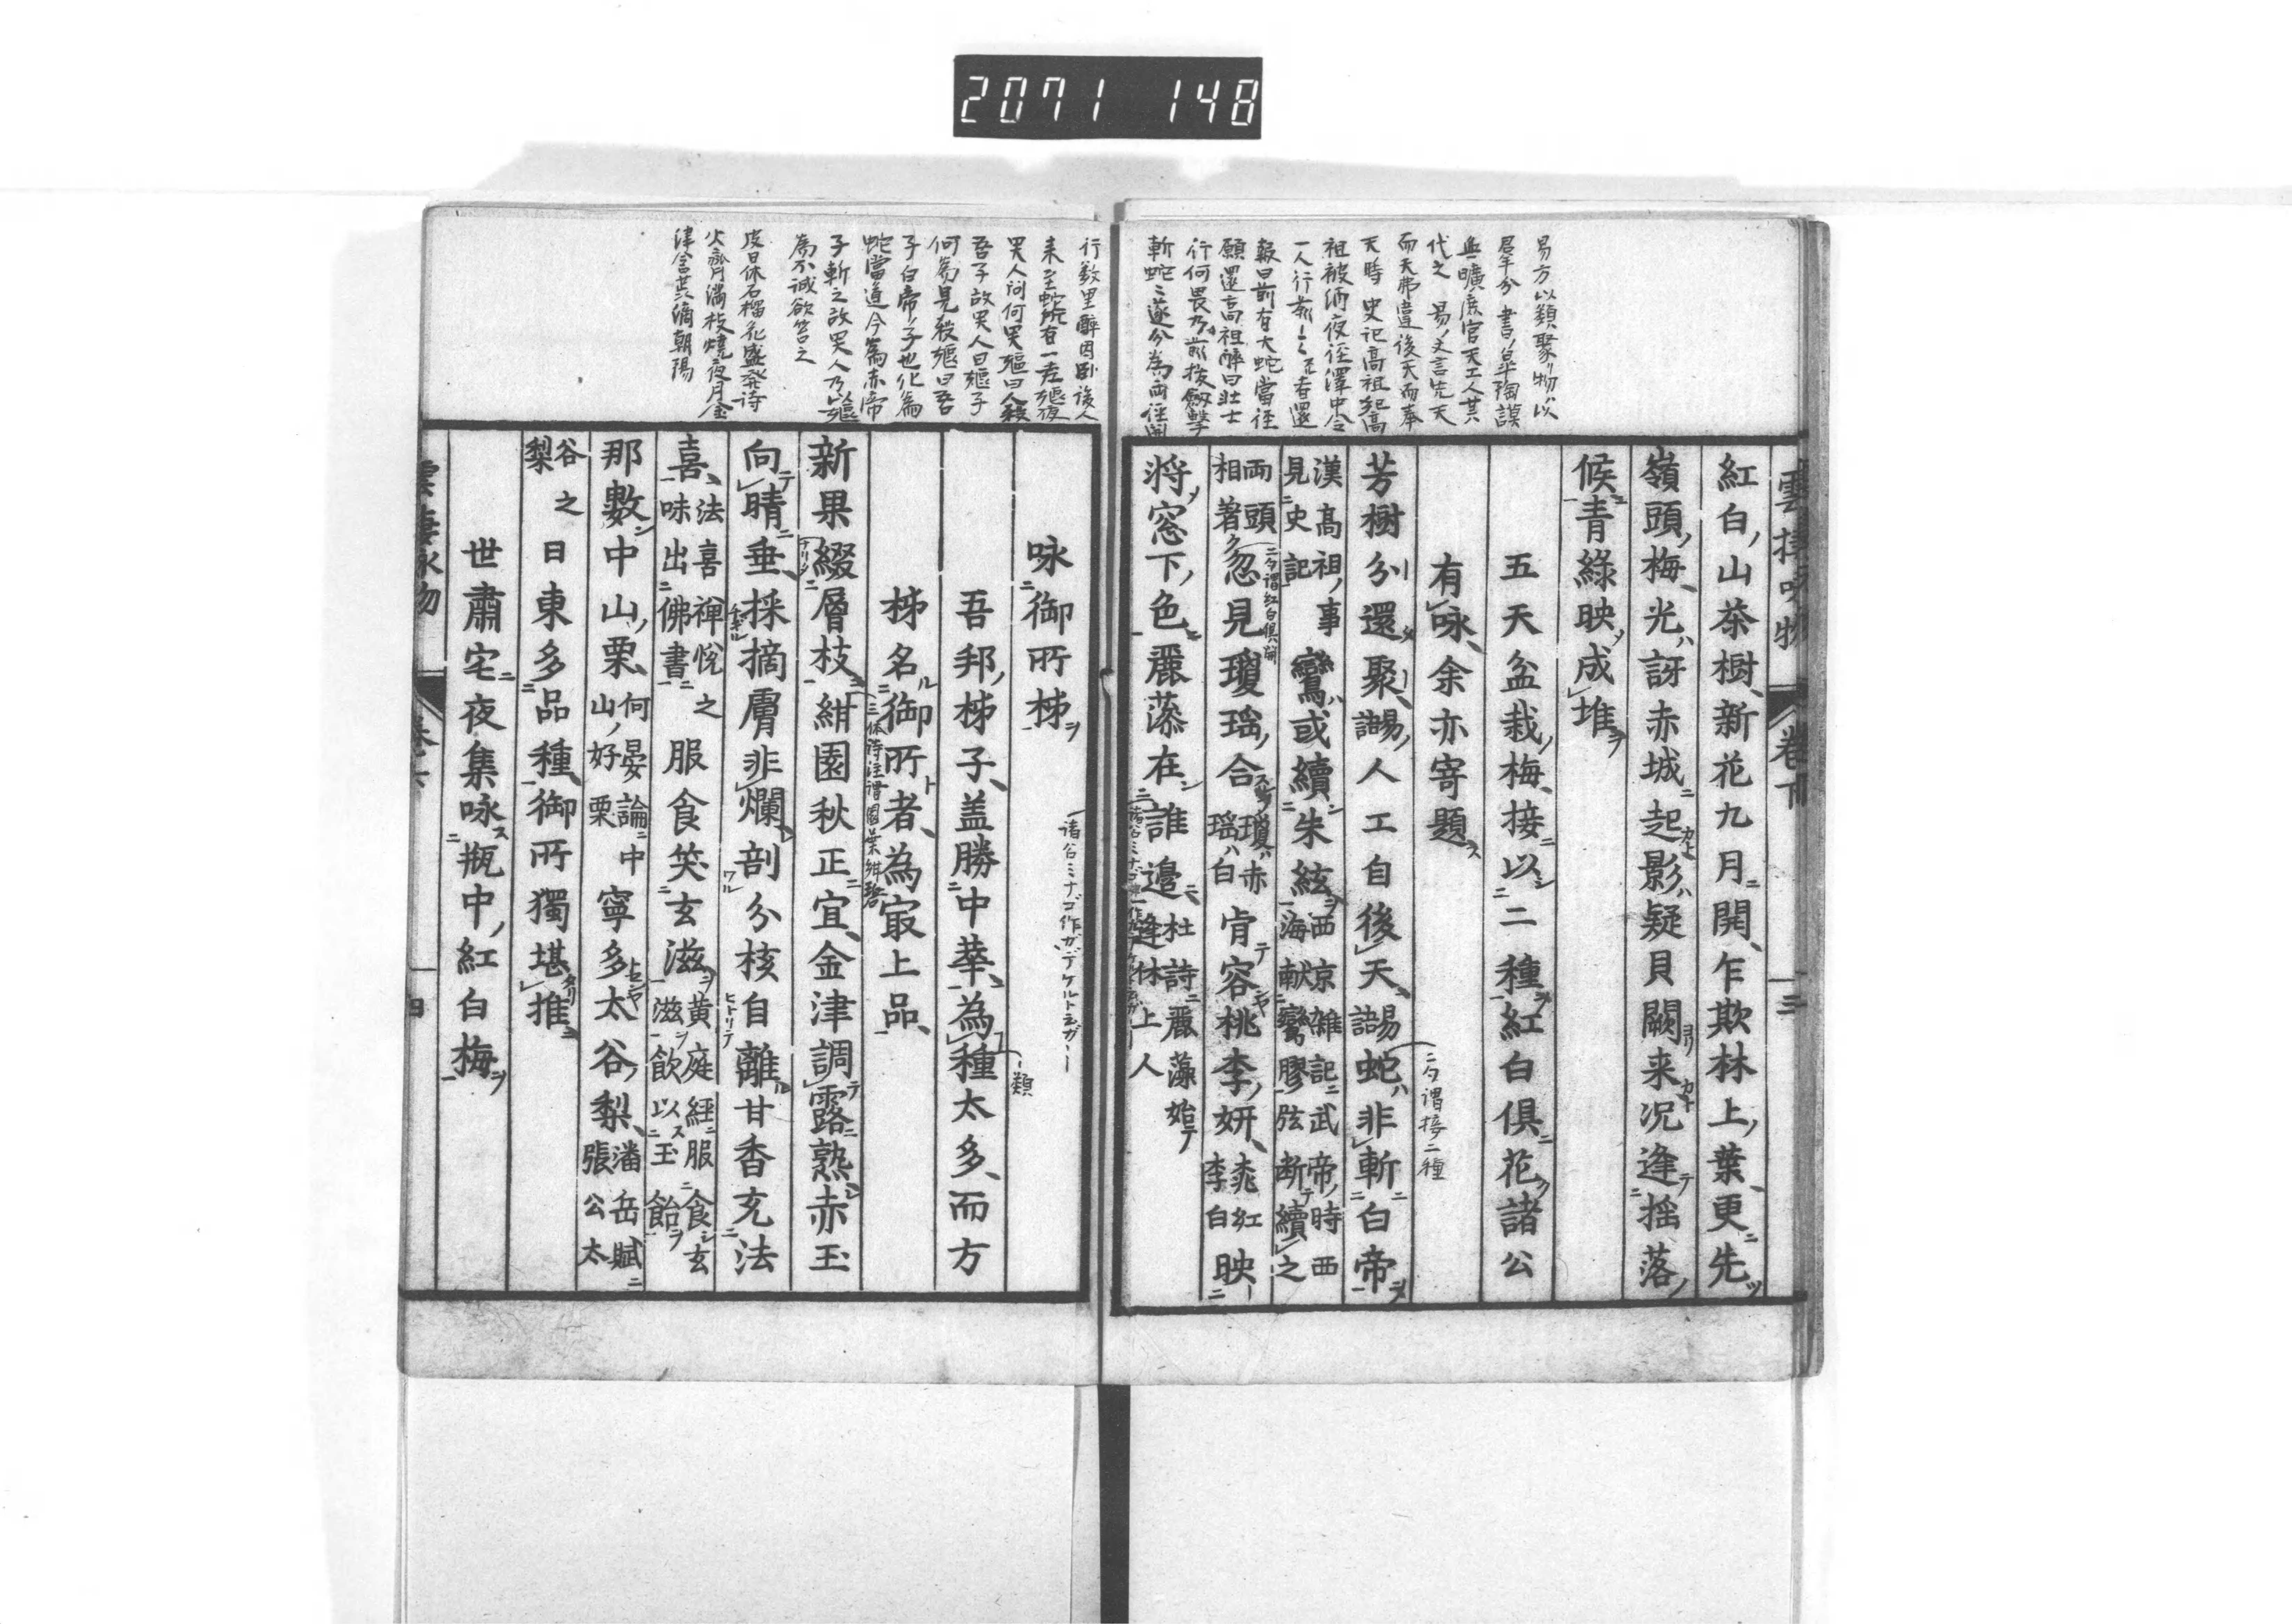 2071 148
易方以類聚物以
羣分 書皐陶謨
無曠庶官天工人其
代之 易文言先天
而天弗違後天而奉
天時 史記高祖紀高
祖被酒夜徑澤中令
一人行前行前者還
報曰前有大蛇當徑
願還高祖醉曰壯士
行何畏乃前拔劔擊
斬蛇々遂分為兩徑開
雲棲咏物 卷下 三
紅白山茶樹新花九月開乍欺林上葉更先
嶺頭梅光訝赤城起影疑貝闕来况逢揺落
候青綠映成堆
五天盆栽梅接以二種紅白俱花諸公
有咏余亦寄題
二夕謂接二種
芳樹分還聚易人工自後天易蛇非斬白帝
漢髙祖事
見史記
鸞或續朱絃
西京雜記武帝時西
海献鸞膠弦断續之
兩頭
相著
忽見瓊瑶合
二夕謂紅白俱開
瓊赤
瑶白
肯容桃李妍
桃紅
李白
映
將窓下色麗藻在誰邉
杜詩麗藻始
逢休上人
行数里醉因卧後人
来至蛇所有一老嫗夜
哭人问何哭嫗曰人殺
吾子故哭人曰嫗子
何為見殺嫗曰吾
子白帝子也化為
蛇當道今為赤帝
子斬之故哭人乃以嫗
為不誠欲笞之
皮日休石榴花盛発诗
火齊滿枝燒夜月金
津含蕊滴朝陽
咏御所柹
吾邦柹子盖勝中華為種太多而方
柹名御所者為㝡上品
新果綴層枝紺園秋正宜金津調露熟赤玉
向晴垂採摘膚非爛剖分核自離甘香充法
喜
法喜禪悅之
味出佛書
服食笑玄滋
黄庭經服食玄
滋飲以玉飴
那數中山栗
何晏論中
山好栗
寧多太谷梨
潘岳賦
張公太
谷之
梨
日東多品種御所獨堪推
世肅宅夜集咏瓶中紅白梅